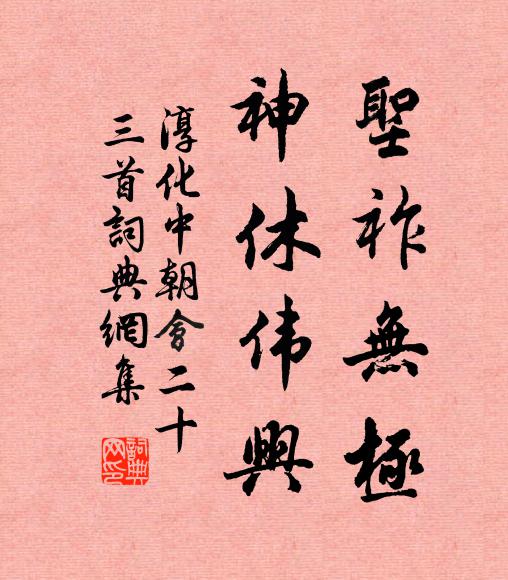 聖祚無極
神休伟興
淳化中朝會二十
三首詞典網集
詞典網印